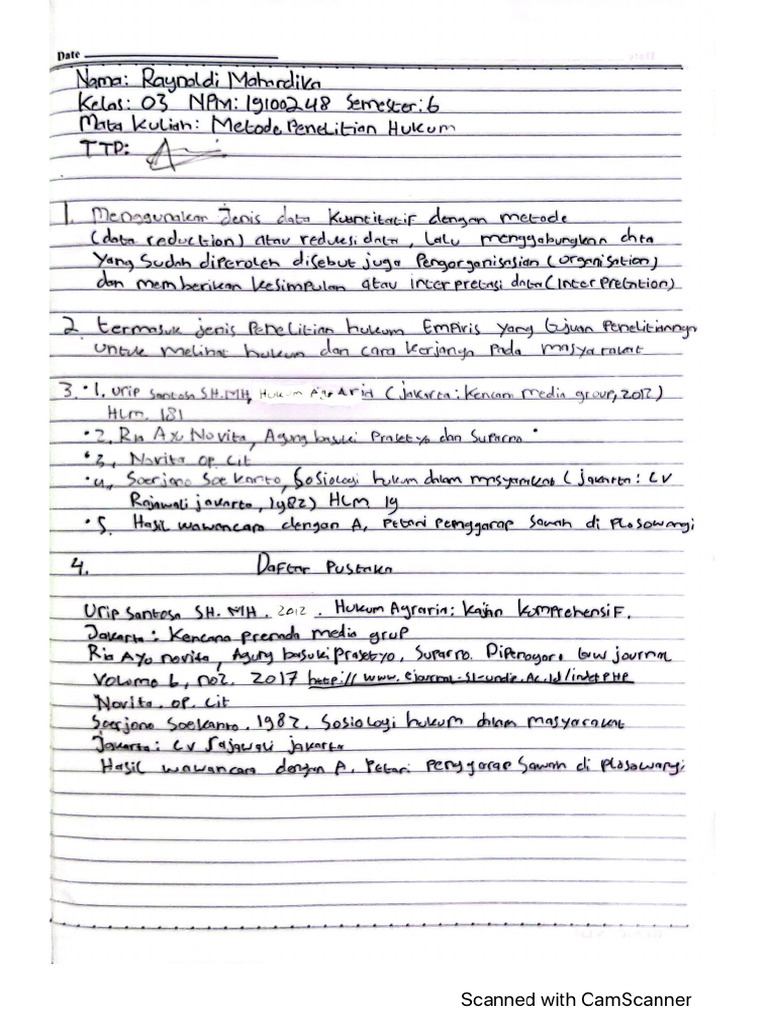 Date
Nama: Raynaldi Mahardika
Kelas: 03 NPM: 19100248 Semester: 6
Mata Kuliah: Metode Penelitian Hukum
TTD:
1. Menggunakan Jenis data Kuantitatif dengan metode
(data reduction) atau reduksi data, lalu menggabungkan data
yang sudah diperoleh disebut juga Pengorganisasian (organisation)
dan memberikan kesimpulan atau interpretasi data (Interpretation)
2. termasuk jenis Penelitian hukum Empiris yang tujuan Penelitiannya
untuk melihat hukum dan cara kerjanya pada masyarakat
3. • 1. Urip Santosa SH.MH, Hukum Agraria (Jakarta: Kencana media group, 2012)
Hlm. 181
• 2. Ria Ayu Novita, Agung basuki Prasetyo dan Suparno "
• 3, Novita op. Cit
• 4, Soerjono Soekanto, Sosiologi hukum dalam masyarakat (jakarta: CV
Rajawali jakarta, 1982) Hlm 19
• 5. Hasil wawancara dengan A, Petani Penggarap Sawah di Plosowangi
4. Daftar Pustaka
Urip Santosa SH. MH. 2012. Hukum Agraria: Kajian Komprehensif.
Jakarta: Kencana prenada media grup
Ria Ayu novita, Agung basuki prasetyo, Suparno. Dipenogoro law journal
Volume 6, no2. 2017 http://www.ejournal-s1-undip.Ac.Id/index.PHP
Novita. op. cit
Soerjono Soekanto, 1982. Sosiologi hukum dalam masyarakat
Jakarta: CV rajawali jakarta
Hasil wawancara dengan A, Petani penggarap Sawah di Plosowangi
Scanned with CamScanner